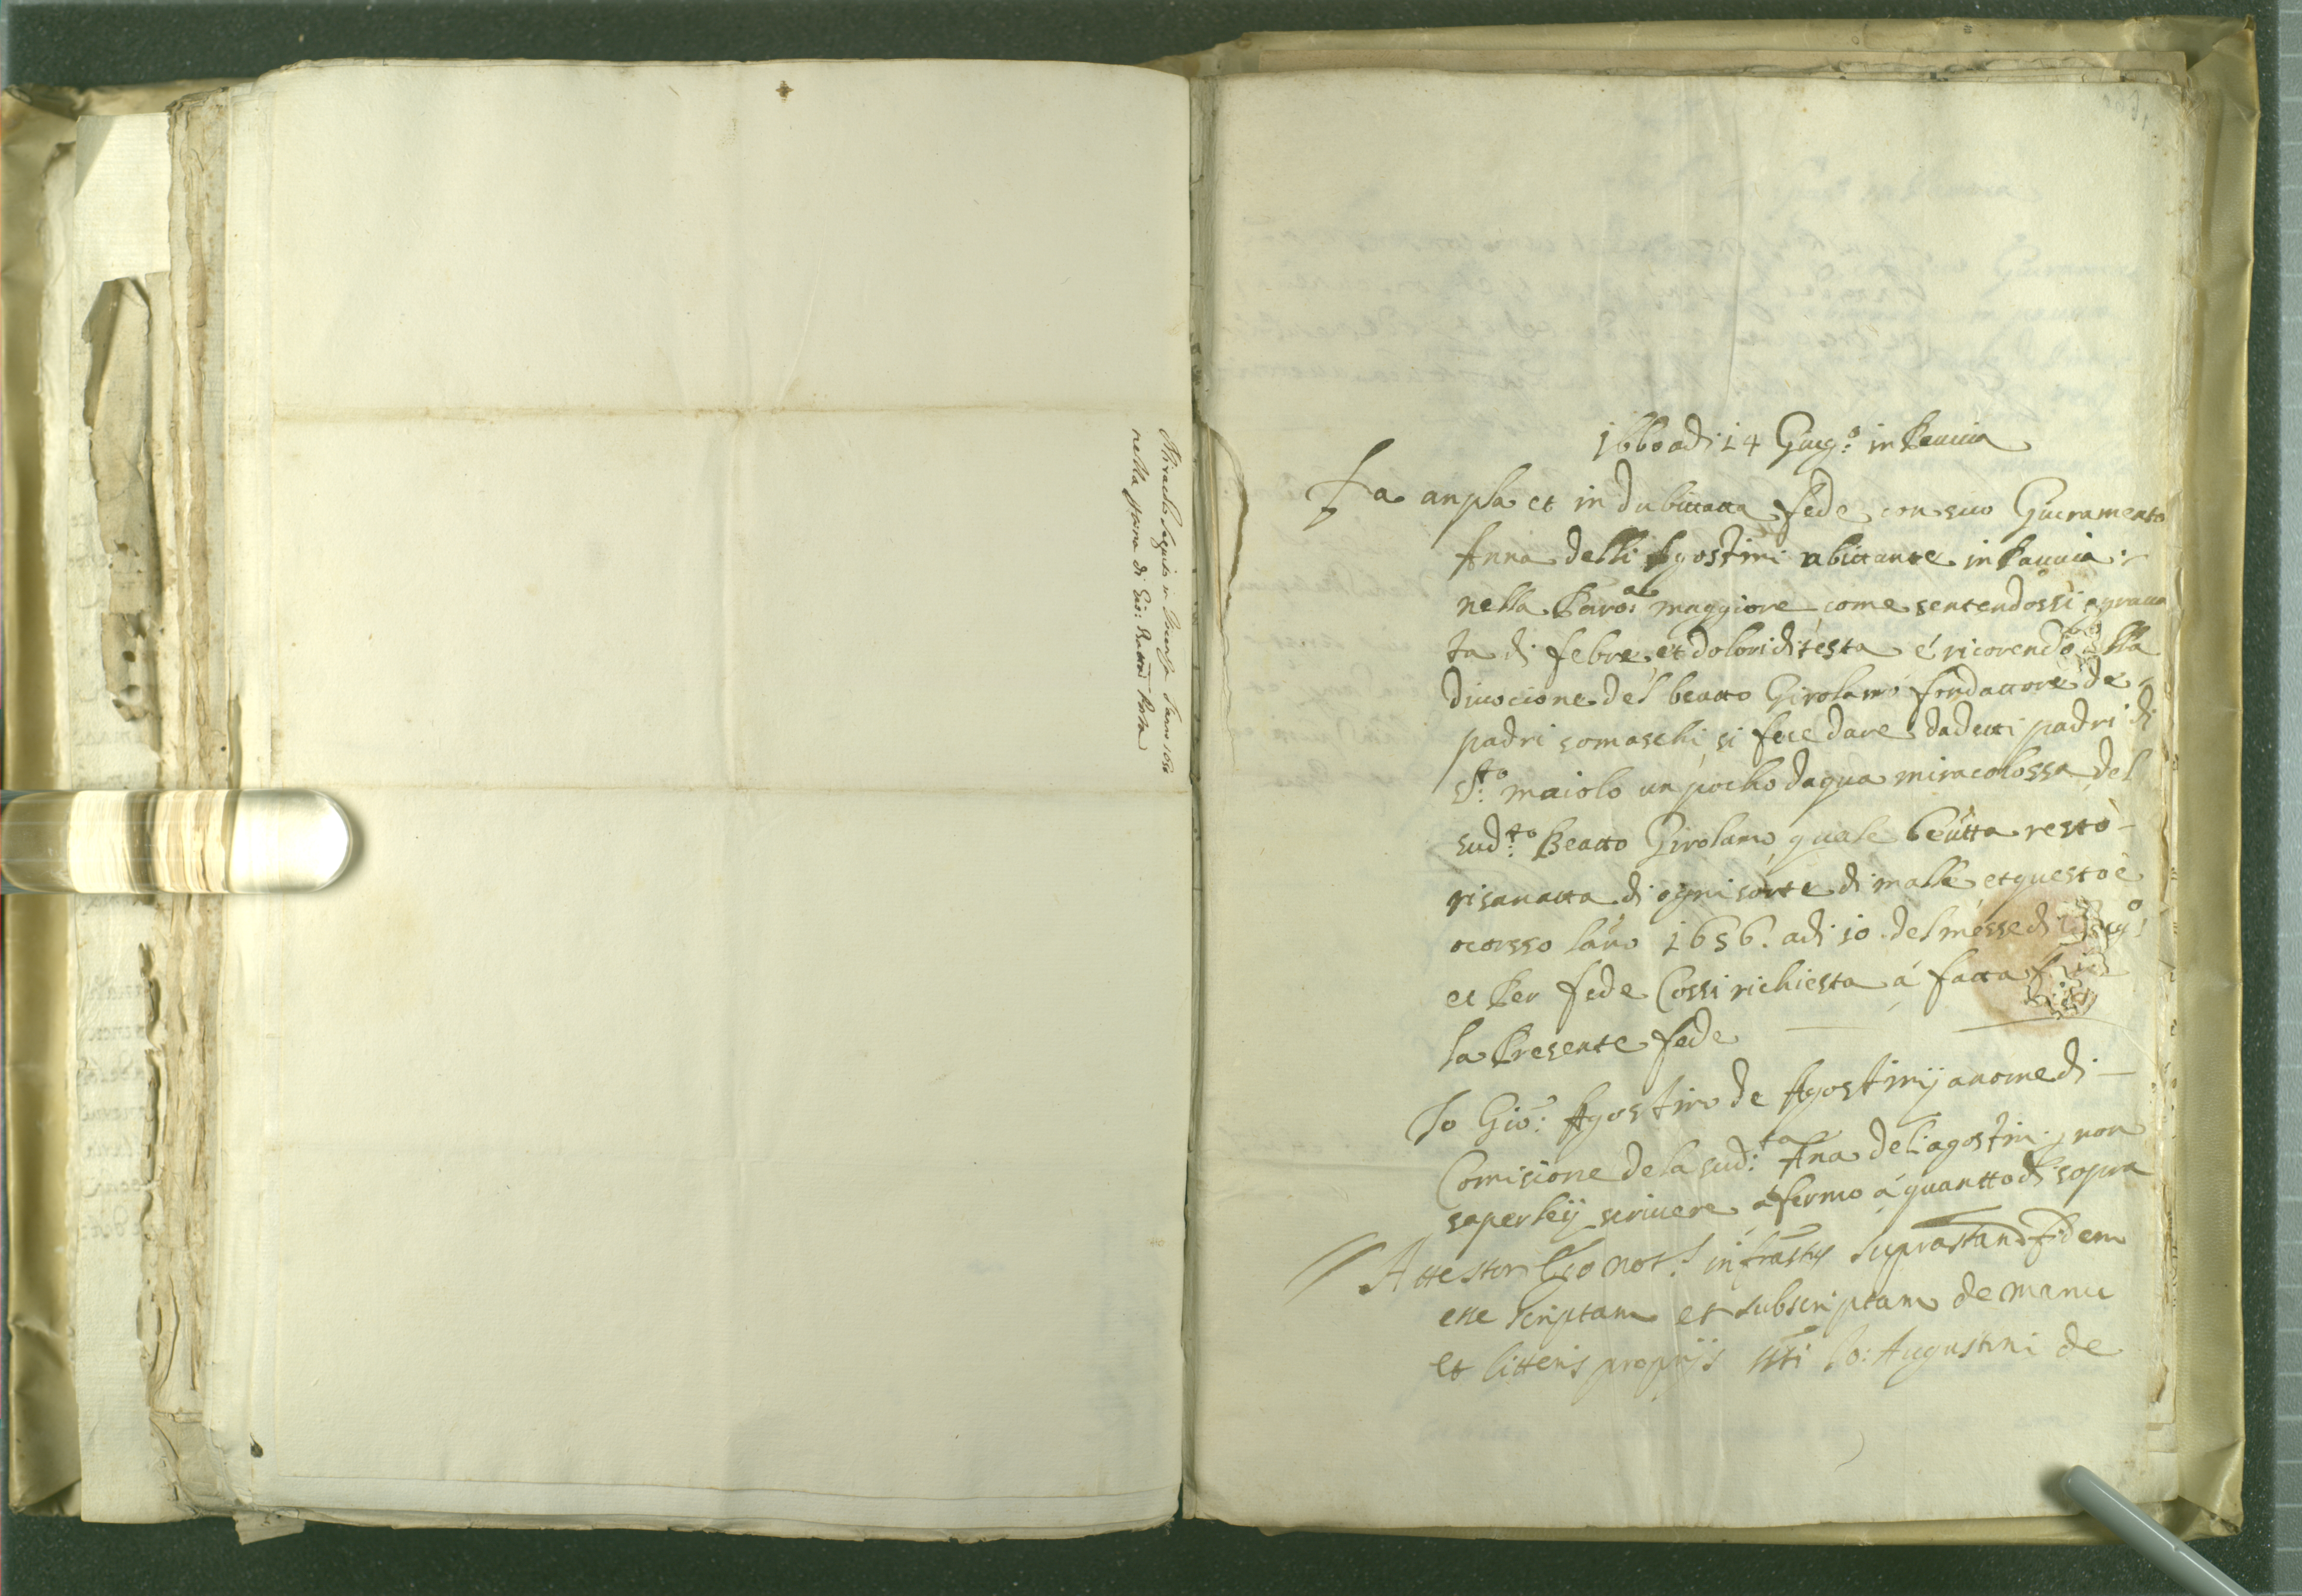 Miracolo seguito in l'anno 1650
nella persona di Gio: Batta
1660 adi 14 Giug.º in Pauia
Fa anpla et in dubittatta fede con suo Giuramento
Anna delli Agostini abittante in Pauuia:
nella Paro:ª maggiore come sentendossi agraua
ta di febre, et dolori di testa é ricorendo alla
diuocione del beatto Girolamo fondattore de
padri somaschi si fece dare dadetti padri di
S:to maiolo un pocho dagua miracolossa del
sud:to Beatto Girolamo quale beutta restò
risanatta di ogni sorte di malle, et questo è
ocorsso lano 1656. adi 10 del messe di Giug:º
et Per fede Cossi richiesta á fatta
la Presente fede
Io Gio: Agostino de Agostinij a nome di
Comisione de la sud:ta Ana deli agostini non
saper leij scriuere afermo á quantto di sopra
Attestor Ego not.s infrastus suprastam fidem
esse scriptam et subscriptam de manu
et litteris proprijs ssti Io: Augustini de